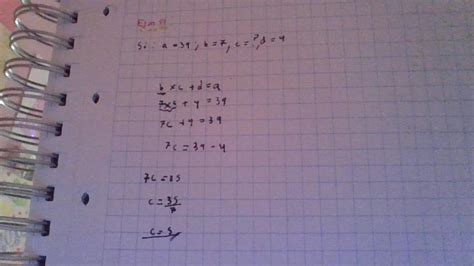 Si : a = 39 , b = 7 , c = ? , d = 4
b x c + d = a
7 x c + 4 = 39
7c + 4 = 39
7c = 39 - 4
7c = 35
c = 35/7
c = 5